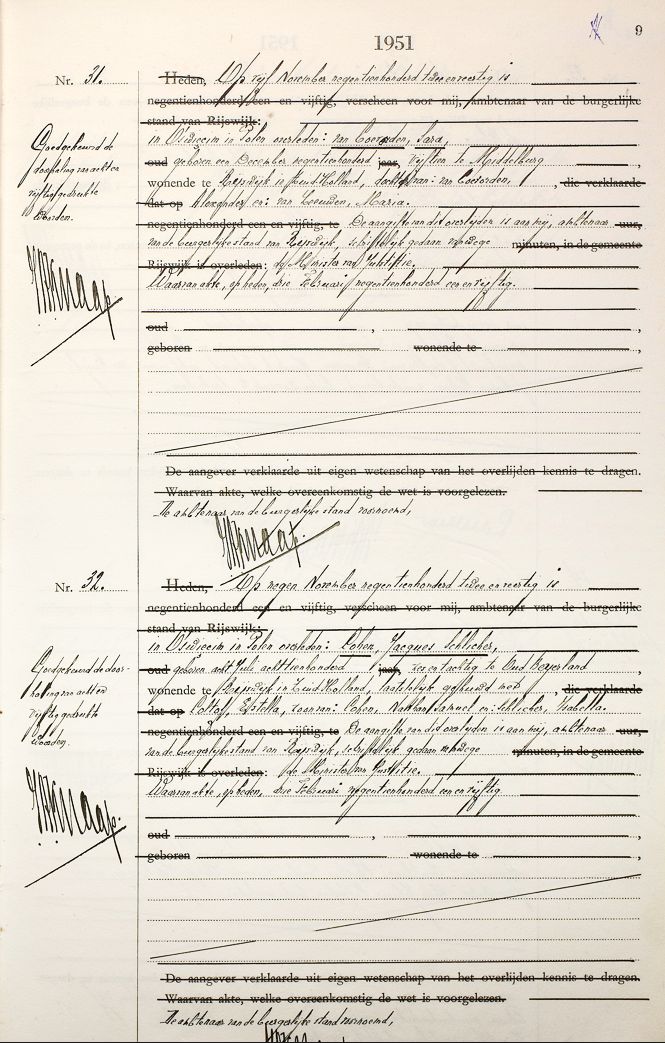 9
1951
Nr. 31.
Heden, Op vijf November negentienhonderd twee en veertig is
negentienhonderd een en vijftig, verscheen voor mij, ambtenaar van de burgerlijke
stand van Rijswijk:
in Osdiecim in Polen overleden: van Coevorden, Sara,
oud geboren een December negentienhonderd jaar, vijftien te Middelburg ,
wonende te Rijswijk in Zuid Holland, dochter van: van Coevorden, , die verklaarde
dat op Alexander en: van Leeuwen, Maria.
negentienhonderd een en vijftig, te De aangifte van dit overlijden is aan mij, ambtenaar uur,
van de burgerlijke stand van Rijswijk, schriftelijk gedaan vanwege minuten, in de gemeente
Rijswijk is overleden: de Minister van Justitie.
Waarvan akte, op heden, drie Februari negentienhonderd een en vijftig.
oud ,
geboren wonende te ,
De aangever verklaarde uit eigen wetenschap van het overlijden kennis te dragen.
Waarvan akte, welke overeenkomstig de wet is voorgelezen.
De ambtenaar van de burgerlijke stand voornoemd,
Goedgekeurd de
doorhaling van acht en
vijftig gedrukte
woorden.
Nr. 32.
Heden, Op negen November negentienhonderd twee en veertig is
negentienhonderd een en vijftig, verscheen voor mij, ambtenaar van de burgerlijke
stand van Rijswijk:
in Osdiecim in Polen overleden: Cohen, Jacques Schlicher,
oud geboren acht Juli achttienhonderd jaar, zes en tachtig te Oud Beyerland ,
wonende te Rijswijk in Zuid Holland, laatstelijk gehuwd met , die verklaarde
dat op Coltof, Estella, zoon van: Cohen, Nathan Samuel en: Schlicher, Isabella.
negentienhonderd een en vijftig, te De aangifte van dit overlijden is aan mij, ambtenaar uur,
van de burgerlijke stand van Rijswijk, schriftelijk gedaan vanwege minuten, in de gemeente
Rijswijk is overleden: de Minister van Justitie.
Waarvan akte, op heden, drie Februari negentienhonderd een en vijftig
oud ,
geboren wonende te ,
De aangever verklaarde uit eigen wetenschap van het overlijden kennis te dragen.
Waarvan akte, welke overeenkomstig de wet is voorgelezen.
De ambtenaar van de burgerlijke stand voornoemd,
Goedgekeurd de door-
haling van acht en
vijftig gedrukte
woorden.